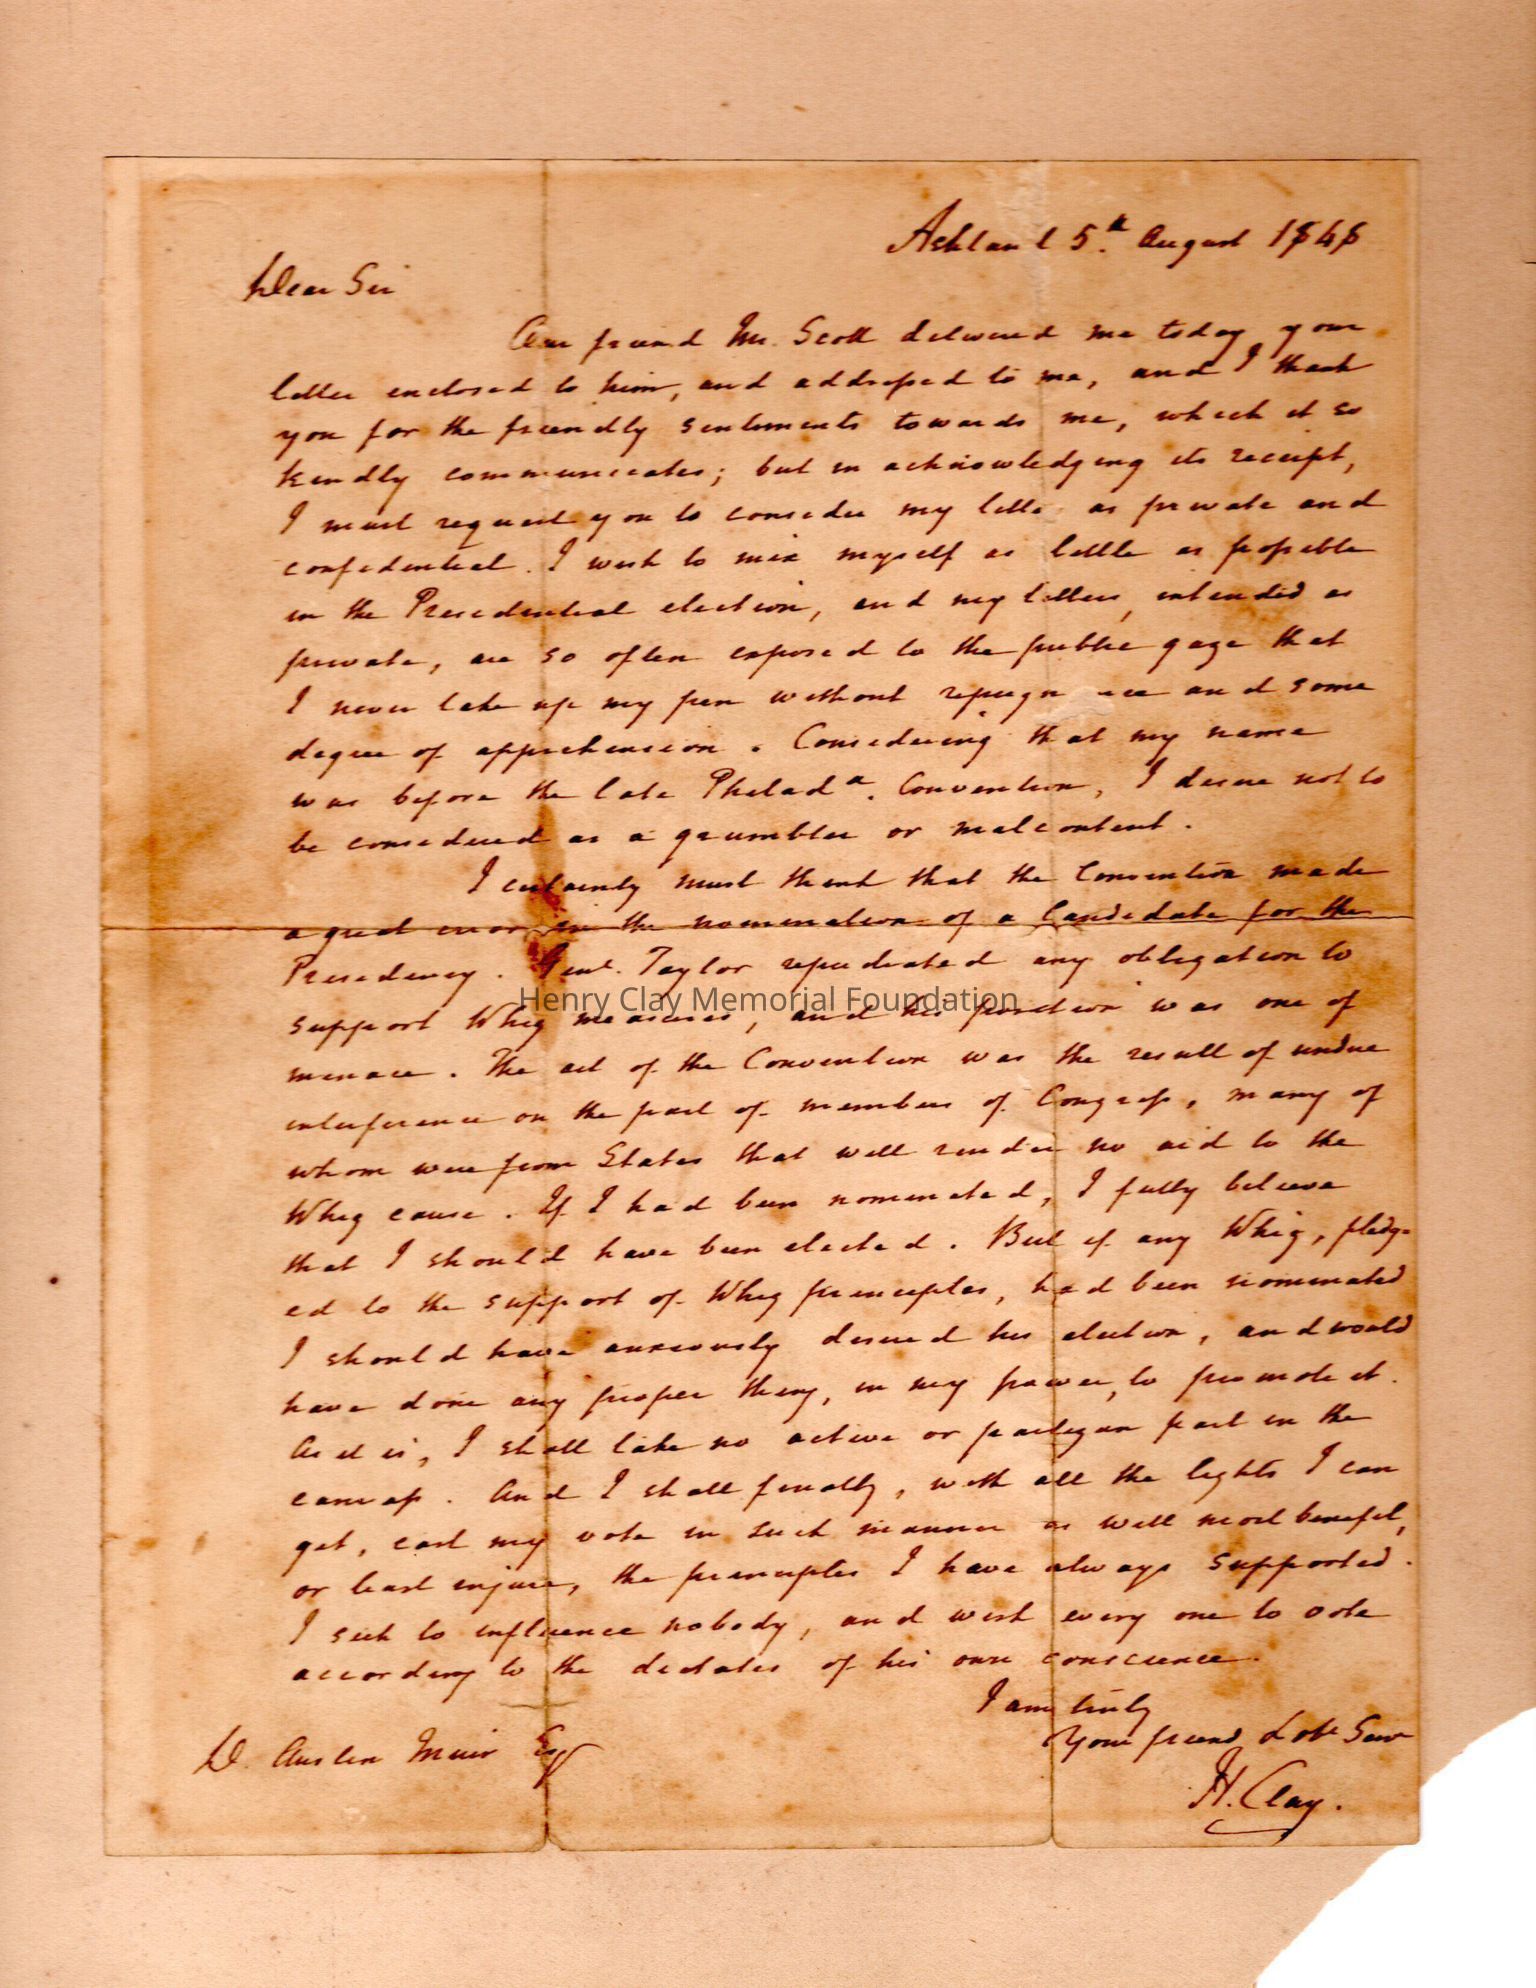 Ashland 5.th August 1848
Dear Sir
Our friend Mr. Scott delivered me today your
letter enclosed to him, and addressed to me, and I thank
you for the friendly sentiments towards me, which it so
kindly communicates; but in acknowledging its receipt,
I must request you to consider my letter as private and
confidential. I wish to mix myself as little as possible
in the Presidential election, and my letters, intended as
private, are so often exposed to the public gaze that
I never take up my pen without repugnance and some
degree of apprehension. Considering that my name
was before the late Philada. Convention, I desire not to
be considered as a grumbler or malcontent.
I certainly must think that the Convention made
a great error in the nomination of a Candidate for the
Presidency. Genl. Taylor repudiated any obligation to
support Whig measures, and his position was one of
Henry Clay Memorial Foundation
menace. The act of the Convention was the result of undue
interference on the part of members of Congress, many of
whom were from States that will render no aid to the
Whig cause. If I had been nominated, I fully believe
that I should have been elected. But if any Whig, pledg-
ed to the support of Whig principles, had been nominated
I should have anxiously desired his election, and would
have done any proper thing, in my power, to promote it.
As it is, I shall take no active or partizan part in the
canvass. And I shall finally, with all the lights I can
get, cast my vote in such manner as will most benefit,
or least injure, the principles I have always supported.
I seek to influence nobody, and wish every one to vote
according to the dictates of his own conscience.
I am truly
Your friend & obt Serv
D. Austen Muir Esq
H. Clay.